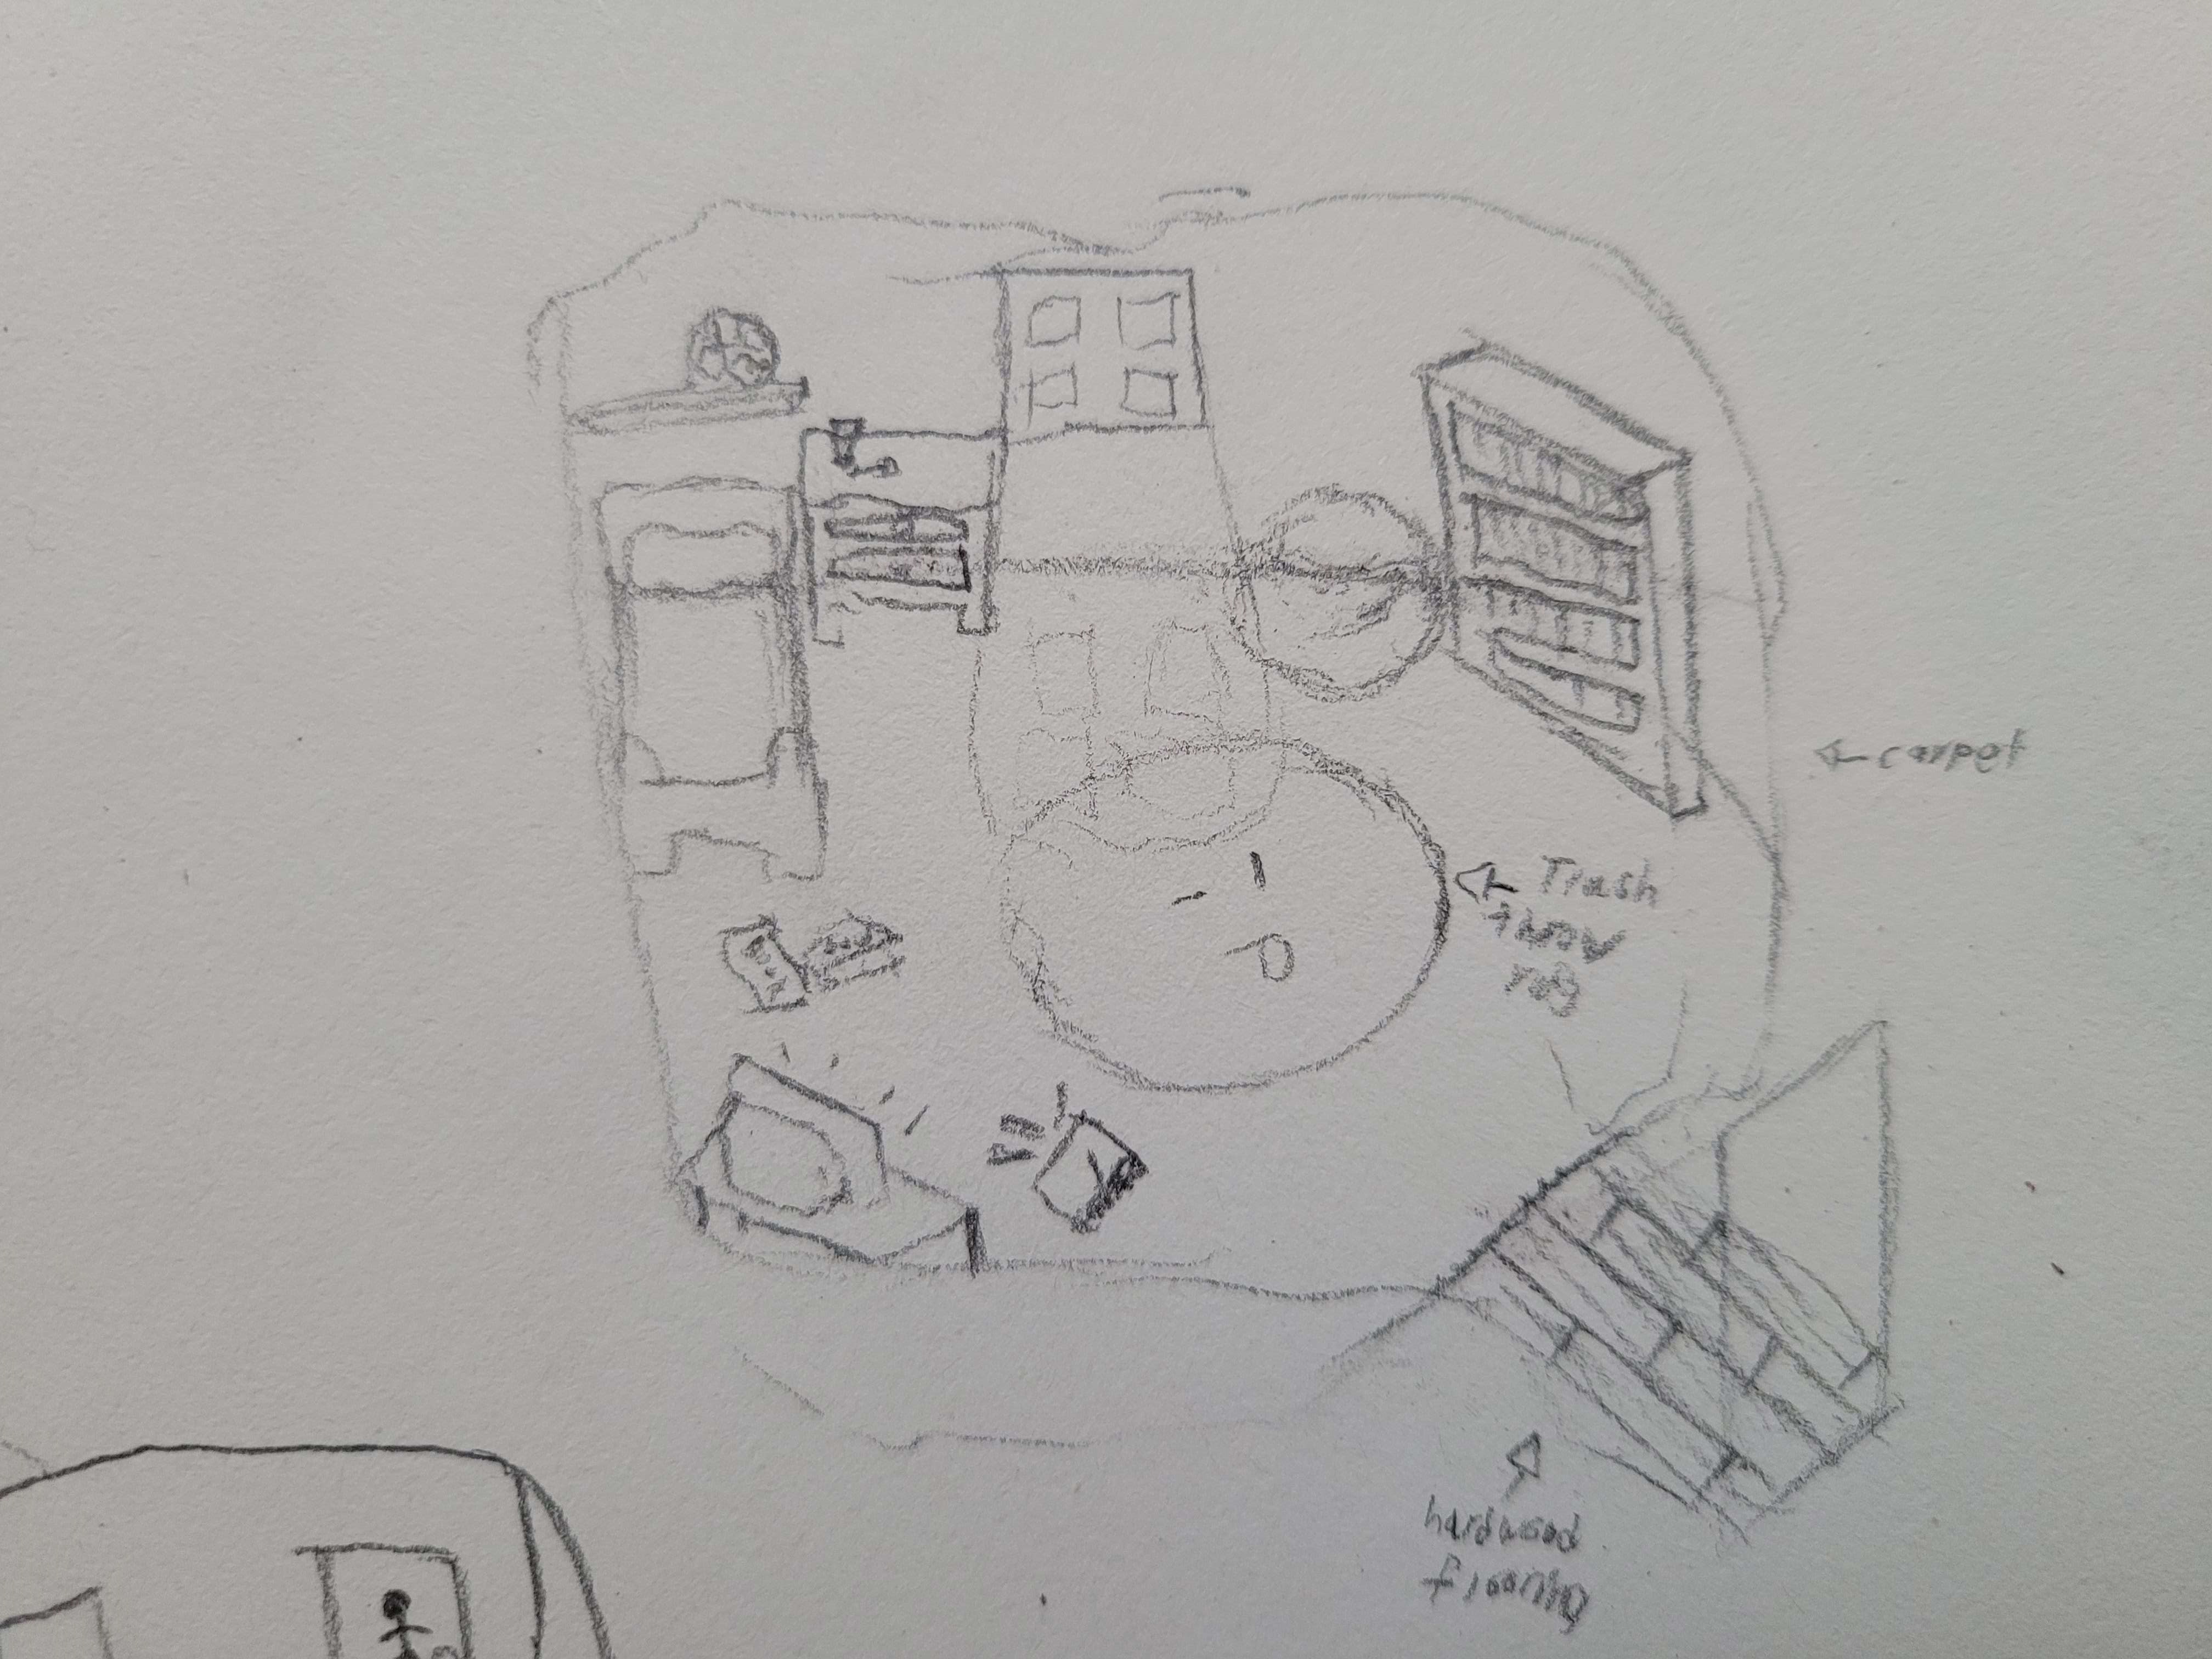 carpet
Trash
throw
rug
hardwood
flooring